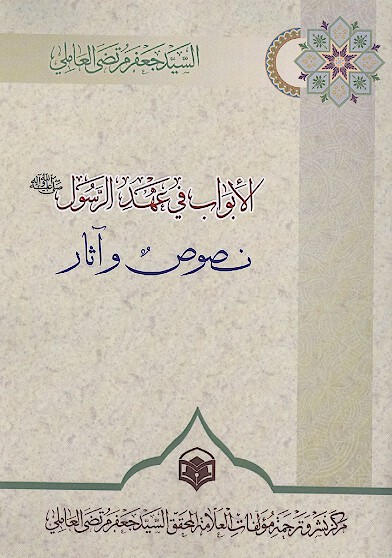 السيد جعفر مرتضى العاملي
الأبواب في عهد الرسول ﷺ
نصوص وآثار
مركز نشر وترجمة مؤلفات العلامة المحقق السيد جعفر مرتضى العاملي